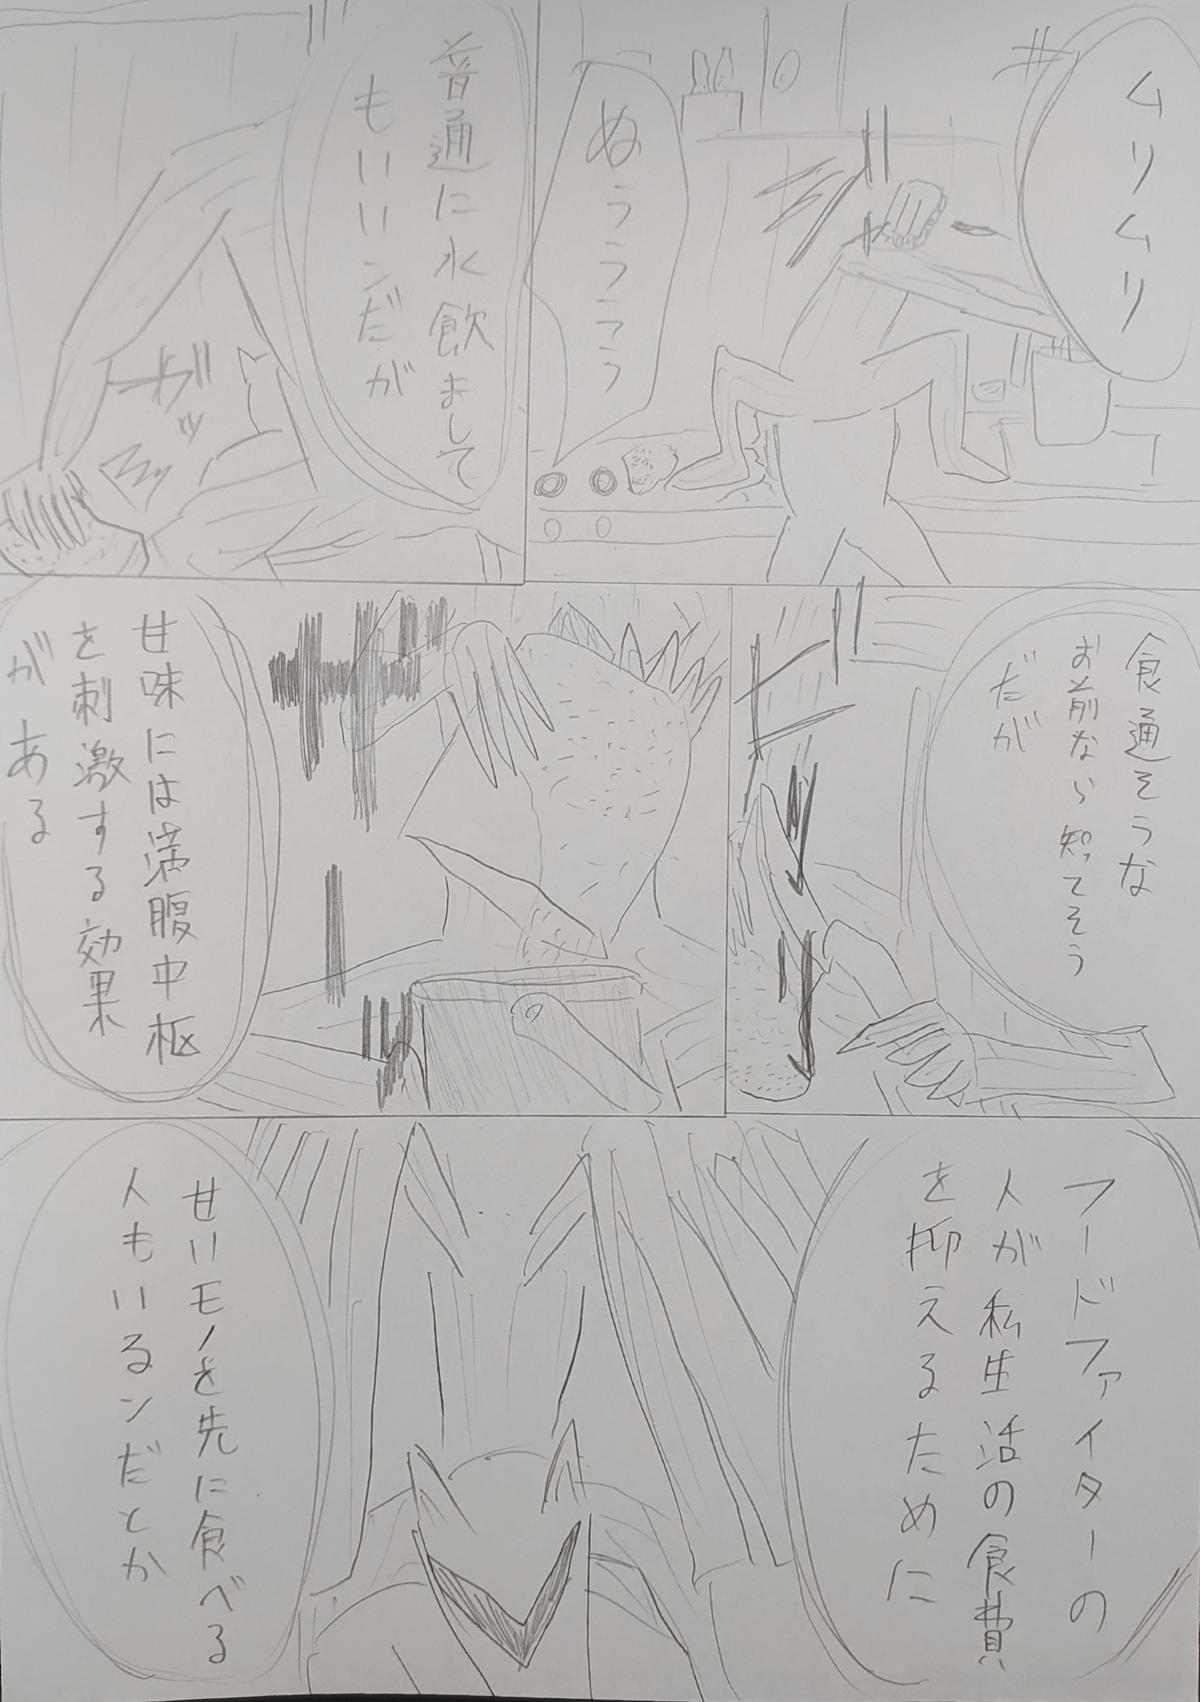 ムリムリ
ぬぅぅぅぅぅ
普通に水飲まして
もいいンだが
ガッ
食通そうな
お前なら知ってそう
だが
甘味には満腹中枢
を刺激する効果
がある
フードファイターの
人が私生活の食費
を抑えるために
せいモノを先に食べる
人もいるンだとか